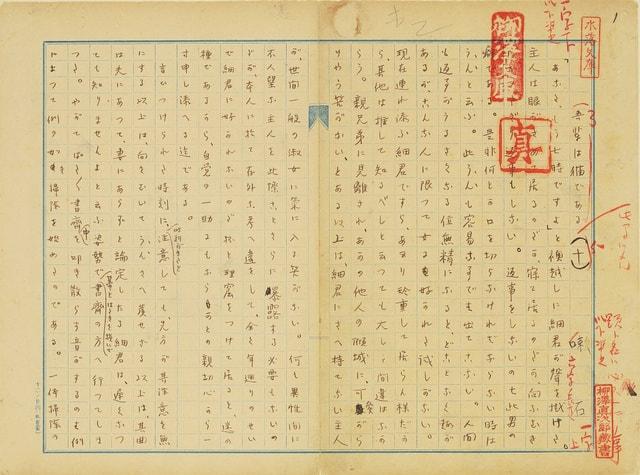 吾輩は猫である
十
漱石
「あなた、もう七時ですよ」と襖越しに細君が声を掛けた。
主人は眼がさめて居るのだか、寝て居るのだか、向ふむき
返事もしない。返事をしないのは此男の
癖である。是非何とか口を切らなければならない時は
うんと云ふ。此うんも容易な事では出てこない。人間
も返事がうるさくなる位無精になると、どことなく趣が
あるが、こんな人に限つて女に好かれた試しがない。
現在連れ添ふ細君ですら、あまり珍重して居らん様だか
ら、其他は推して知るべしと云つても大した間違はなか
らう。親兄弟に見離され、あかの他人の傾城に、可愛がら
りやう筈がない、とある以上は、細君にさへ持てない主人
が、世間一般の淑女に気に入る筈がない。何も異性間に
不人望な主人を此際ことさらに暴露する必要もないの
だが、本人に於て存外な考へ違をして、全く年廻りのせい
で細君に好かれないのだ抔と理窟をつけて居ると、迷の
種であるから、自覚の一助にもならうかとの親切心から一
寸申し添へる迄である。
言ひつけられた時刻に、時刻がきたと注意しても、先方が其注意を無
にする以上は、向をむいてうんさへ発せざる以上は、其曲
は夫にあつて、妻にあらずと論定したる細君は、遅くなつ
ても知りませんよと云ふ姿勢で箒とはたきを担いで書斎の方へ行つてしまつ
た。やがてぱたぱた書斎中を叩き散らす音がするのは例
によつて例の如き掃除を始めたのである。一体掃除の
真
柳澤真次郎蔵書